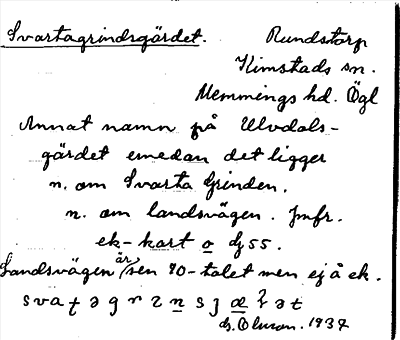 Svartagrindsgärdet. Rundstorp
Kimstads sn.
Memmings hd. Ögl
Annat namn på Ulvdals-
gärdet emedan det ligger
n. om Svarta Grinden.
n. om landsvägen. Jmfr.
ek-kart o dj 55.
Landsvägen är sen 70-talet men ej å ek.
1934